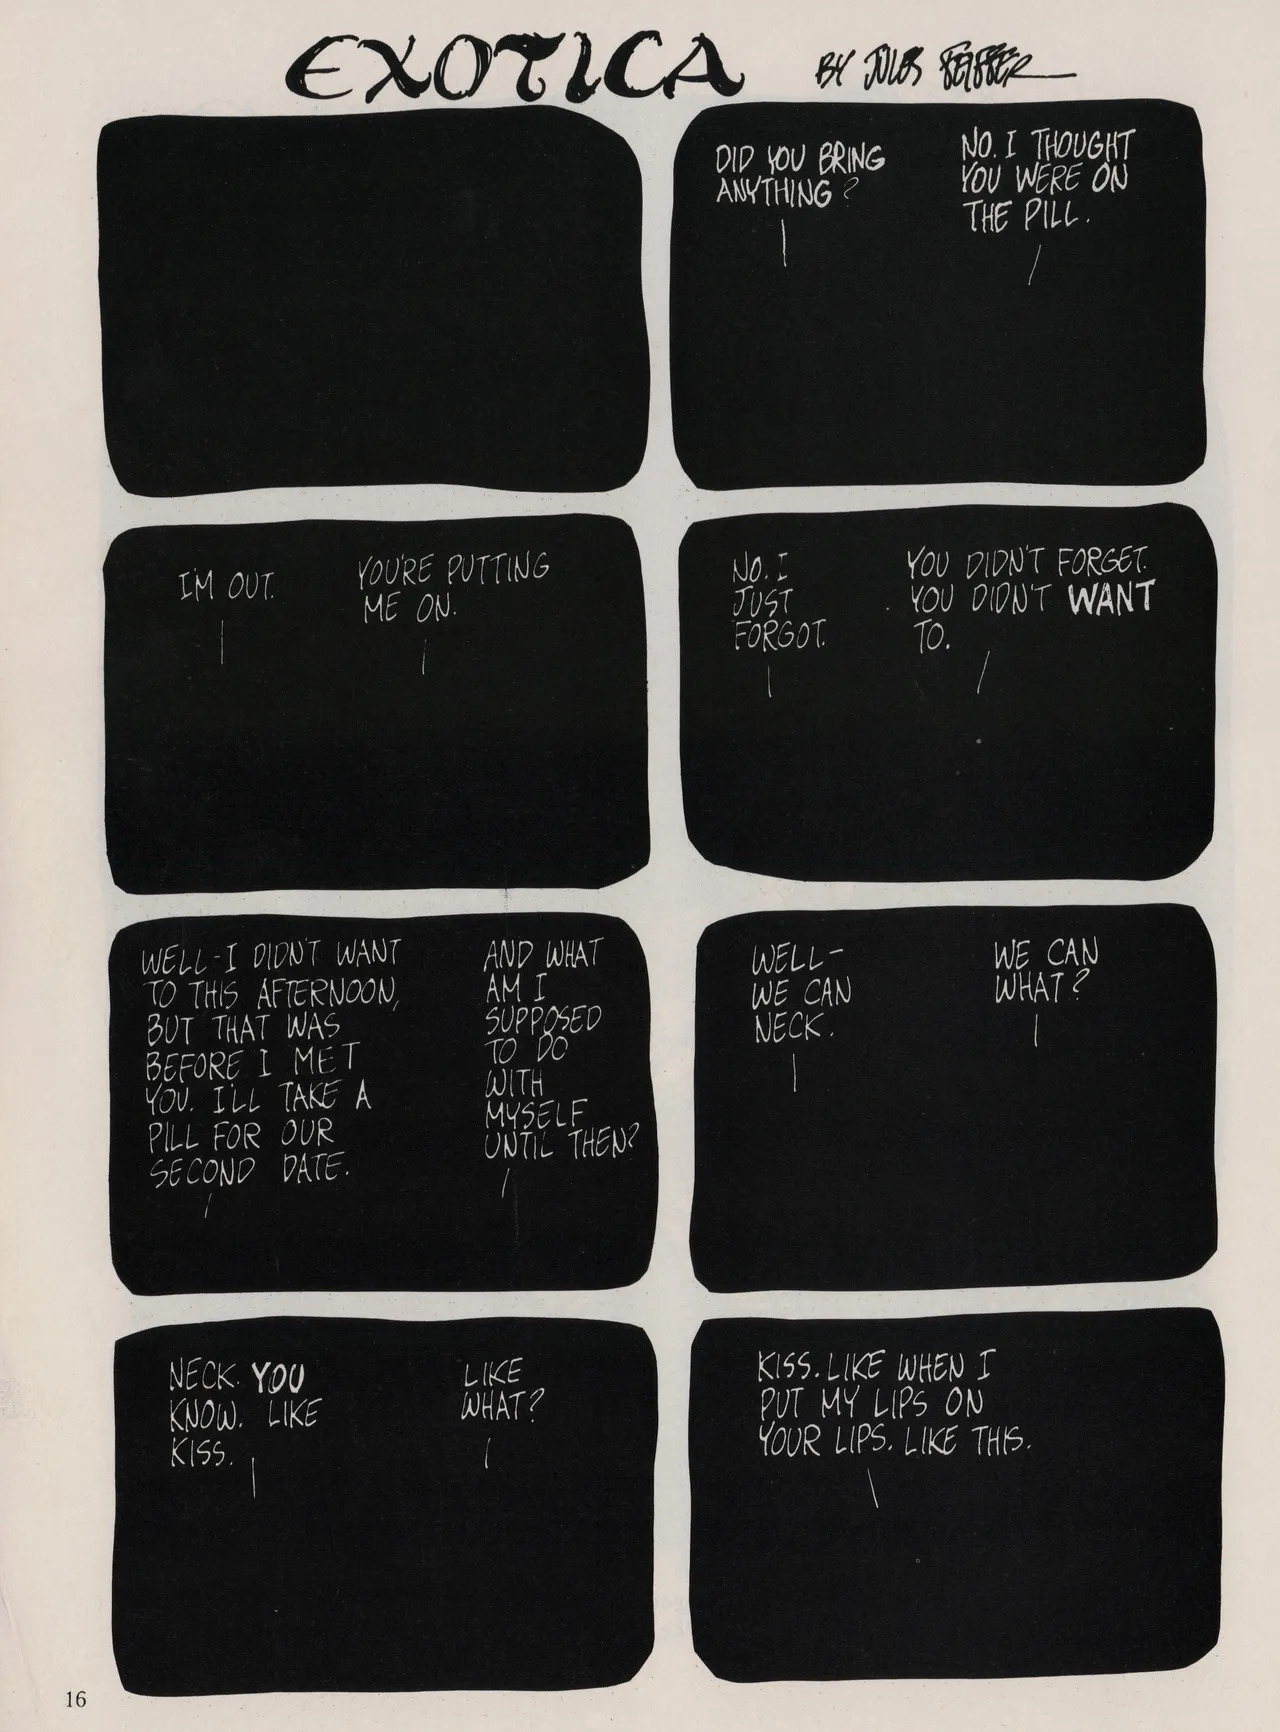 EXOTICA BY JULES FEIFFER
DID YOU BRING
ANYTHING?
NO. I THOUGHT
YOU WERE ON
THE PILL.
I'M OUT.
YOU'RE PUTTING
ME ON.
NO. I
JUST
FORGOT.
YOU DIDN'T FORGET.
YOU DIDN'T WANT
TO.
WELL-I DIDN'T WANT
TO THIS AFTERNOON,
BUT THAT WAS
BEFORE I MET
YOU. I'LL TAKE A
PILL FOR OUR
SECOND DATE.
AND WHAT
AM I
SUPPOSED
TO DO
WITH
MYSELF
UNTIL THEN?
WELL-
WE CAN
NECK.
WE CAN
WHAT?
NECK. YOU
KNOW. LIKE
KISS.
LIKE
WHAT?
KISS. LIKE WHEN I
PUT MY LIPS ON
YOUR LIPS. LIKE THIS.
16